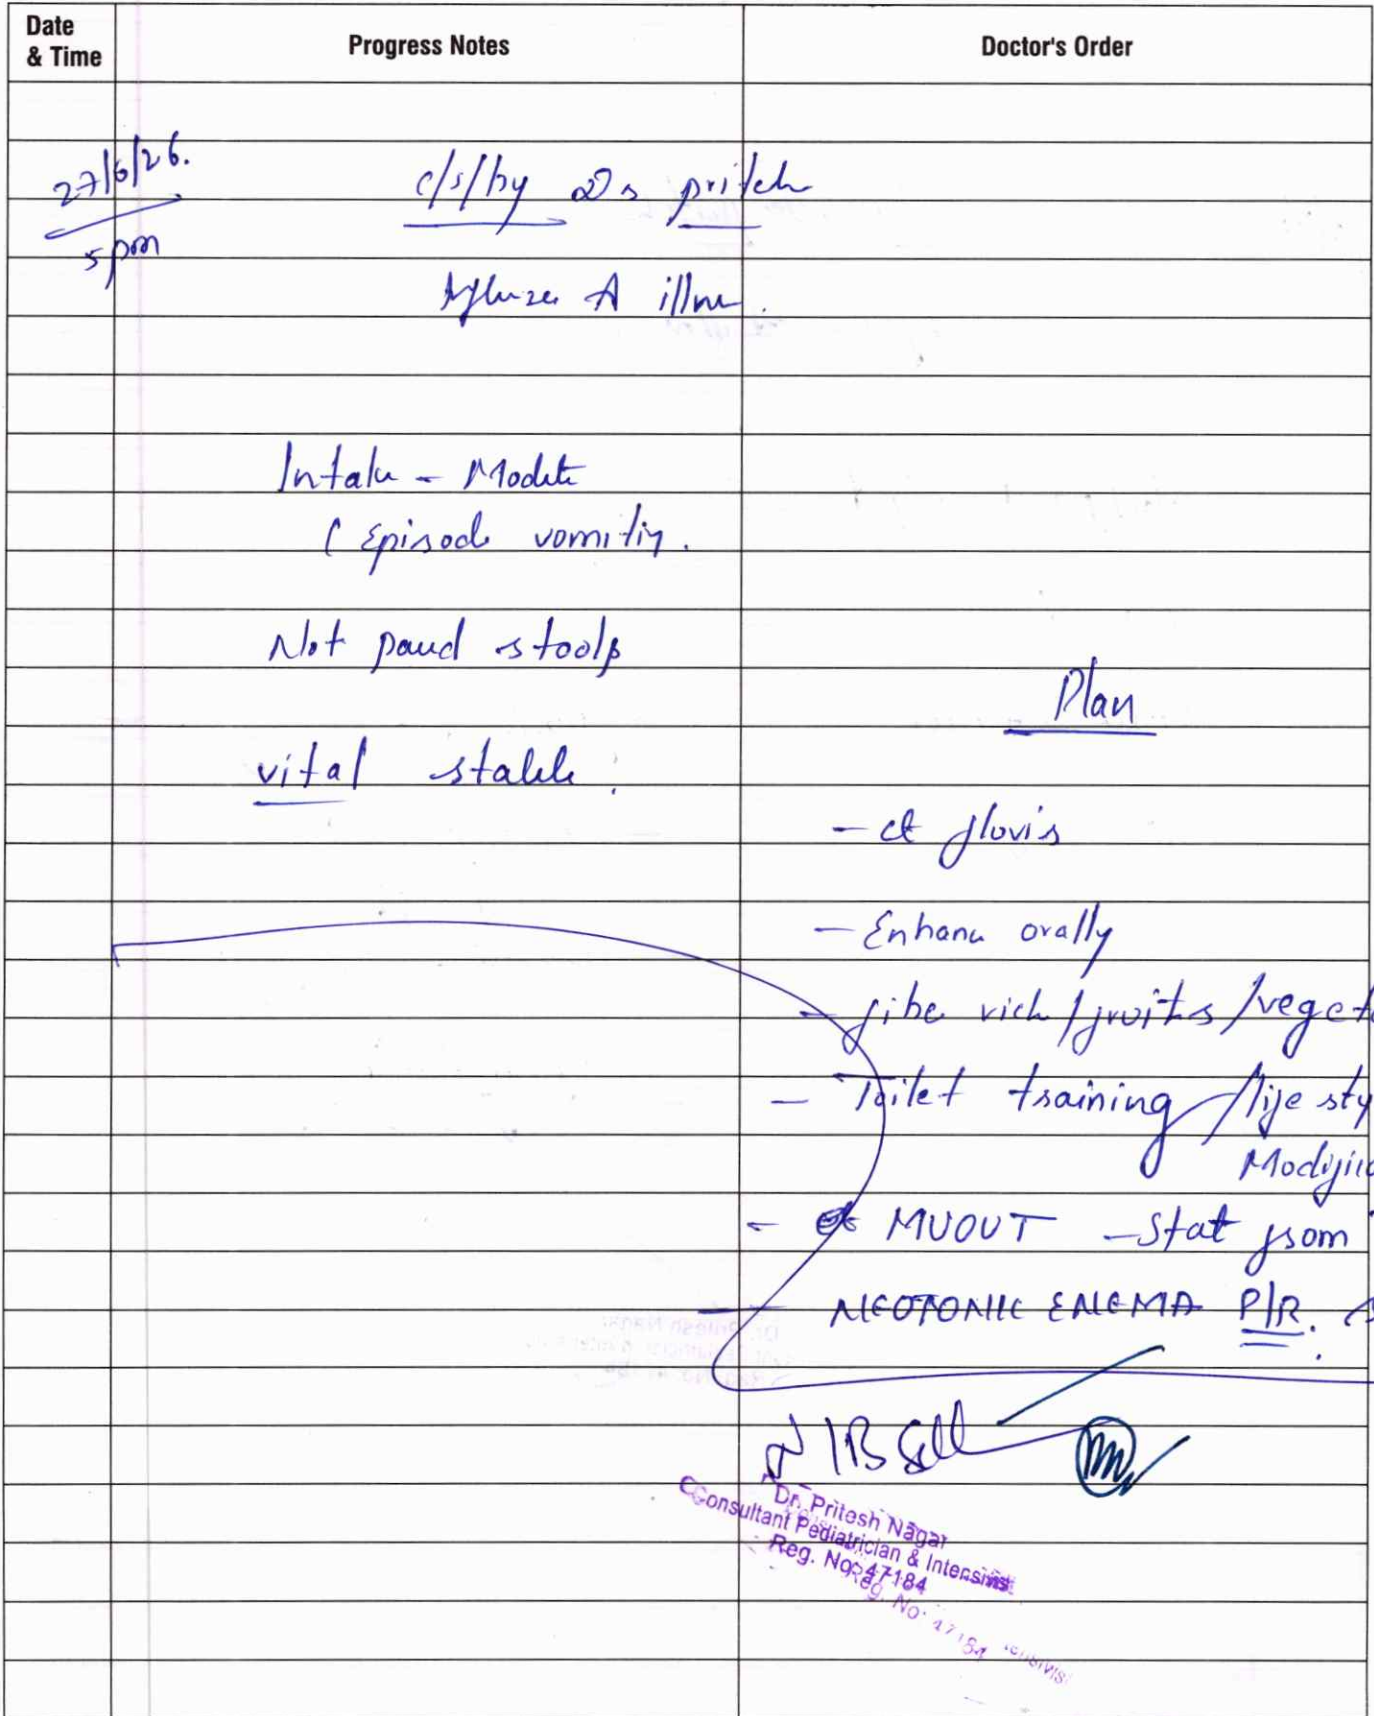 Date & Time
Progress Notes
Doctor's Order
27/6/26.
5 pm
c/s/by Dr pritesh
A illne.
Intake - Modte
1 Episode vomiting.
Not passed stools
vital stable.
Plan
- ct fluvis
- Enhance orally
- fibe rich / fruits / veget
- Toilet training / life sty
Modific
- MUOUT - Stat from
- NEOTONIC ENEMA P/R.
Dr. Pritesh Nagar
Consultant Pediatrician & Intensivist
Reg. No: 47184
Reg. No: 47184